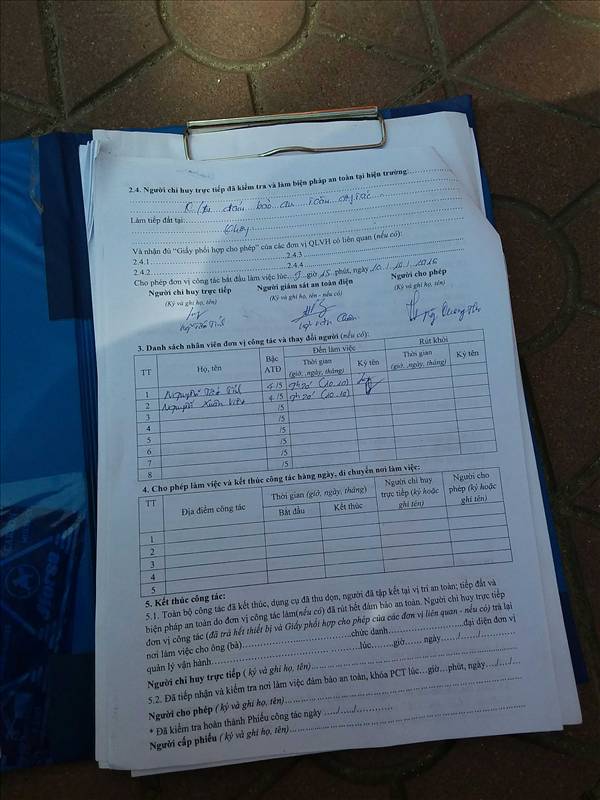 2.4. Người chỉ huy trực tiếp đã kiểm tra và làm biện pháp an toàn tại hiện trường:
đảm bảo an toàn
Làm tiếp đất tại:
Không
Và nhận đủ “Giấy phối hợp cho phép” của các đơn vị QLVH có liên quan (nếu có):
2.4.1 2.4.3
2.4.2 2.4.4
Cho phép đơn vị công tác bắt đầu làm việc lúc 9 giờ 15 phút, ngày 10 / 10 / 2016
Người chỉ huy trực tiếp Người giám sát an toàn điện Người cho phép
(Ký và ghi họ, tên) (Ký và ghi họ, tên - nếu có) (Ký và ghi họ, tên)
3. Danh sách nhân viên đơn vị công tác và thay đổi người (nếu có):
TT Họ, tên Bậc ATĐ Đến làm việc Rút khỏi
Thời gian (giờ, ngày, tháng) Ký tên Thời gian (giờ, ngày, tháng) Ký tên
1 Nguyễn 4/5 (10.10)
2 Nguyễn Xuân 4/5 (10.10)
3 /5
4 /5
5 /5
6 /5
7 /5
8 /5
4. Cho phép làm việc và kết thúc công tác hàng ngày, di chuyển nơi làm việc:
TT Địa điểm công tác Thời gian (giờ, ngày, tháng) Người chỉ huy trực tiếp (ký hoặc ghi tên) Người cho phép (ký hoặc ghi tên)
Bắt đầu Kết thúc
1
2
3
4
5
5. Kết thúc công tác:
5.1. Toàn bộ công tác đã kết thúc, dụng cụ đã thu dọn, người đã tập kết tại vị trí an toàn; tiếp đất và
biện pháp an toàn do đơn vị công tác làm(nếu có) đã rút hết đảm bảo an toàn. Người chỉ huy trực tiếp
đơn vị công tác (đã trả hết thiết bị và Giấy phối hợp cho phép của các đơn vị liên quan - nếu có) trả lại
nơi làm việc cho ông (bà) chức danh đại diện đơn vị
quản lý vận hành lúc giờ ngày / /
Người chỉ huy trực tiếp ( ký và ghi họ, tên)
5.2. Đã tiếp nhận và kiểm tra nơi làm việc đảm bảo an toàn, khóa PCT lúc…giờ…phút, ngày…/…/…
Người cho phép ( ký và ghi họ, tên)
* Đã kiểm tra hoàn thành Phiếu công tác ngày …/…/…
Người cấp phiếu ( ký và ghi họ, tên)